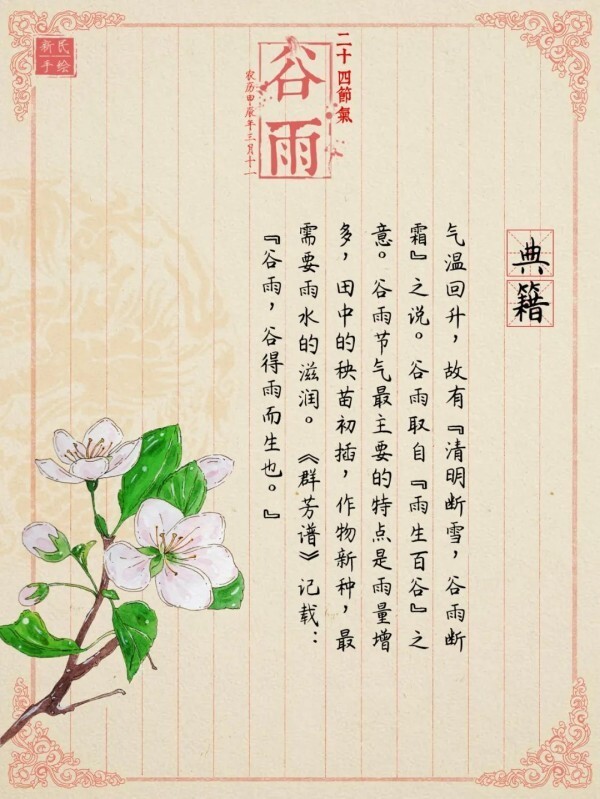 新民
手绘
二十四節氣
谷雨
农历甲辰年三月十二
典籍
气温回升，故有『清明断雪，谷雨断
霜』之说。谷雨取自『雨生百谷』之
意。谷雨节气最主要的特点是雨量增
多，田中的秧苗初插，作物新种，最
需要雨水的滋润。《群芳谱》记载：
『谷雨，谷得雨而生也。』